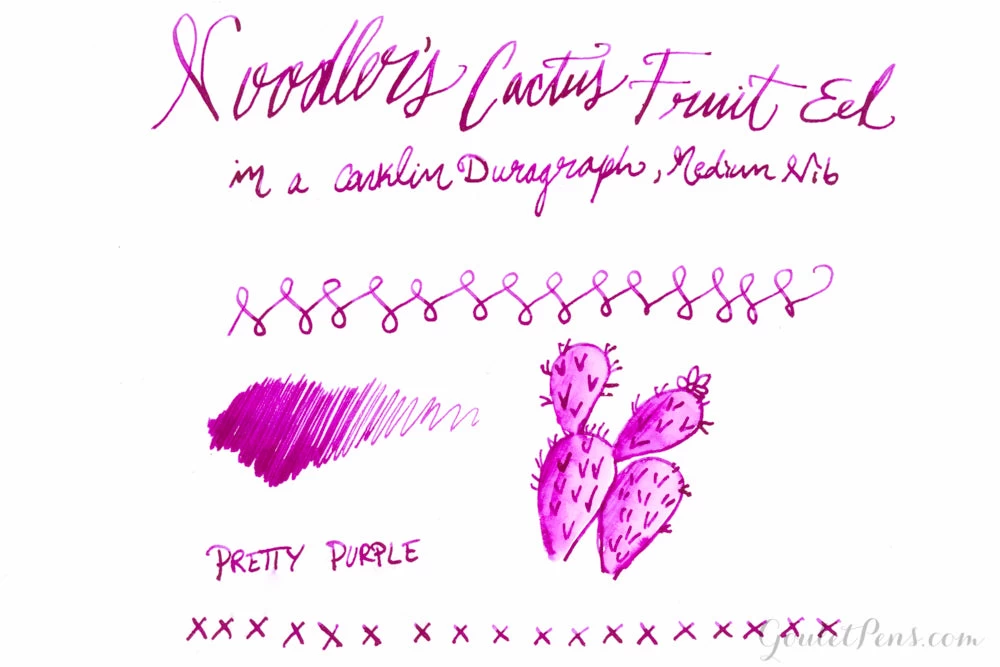 Noodler's Cactus Fruit Eel
in a Conklin Duragraph, Medium Nib
PRETTY PURPLE
x x x x x x x x x x x x x x x x x
GouletPens.com